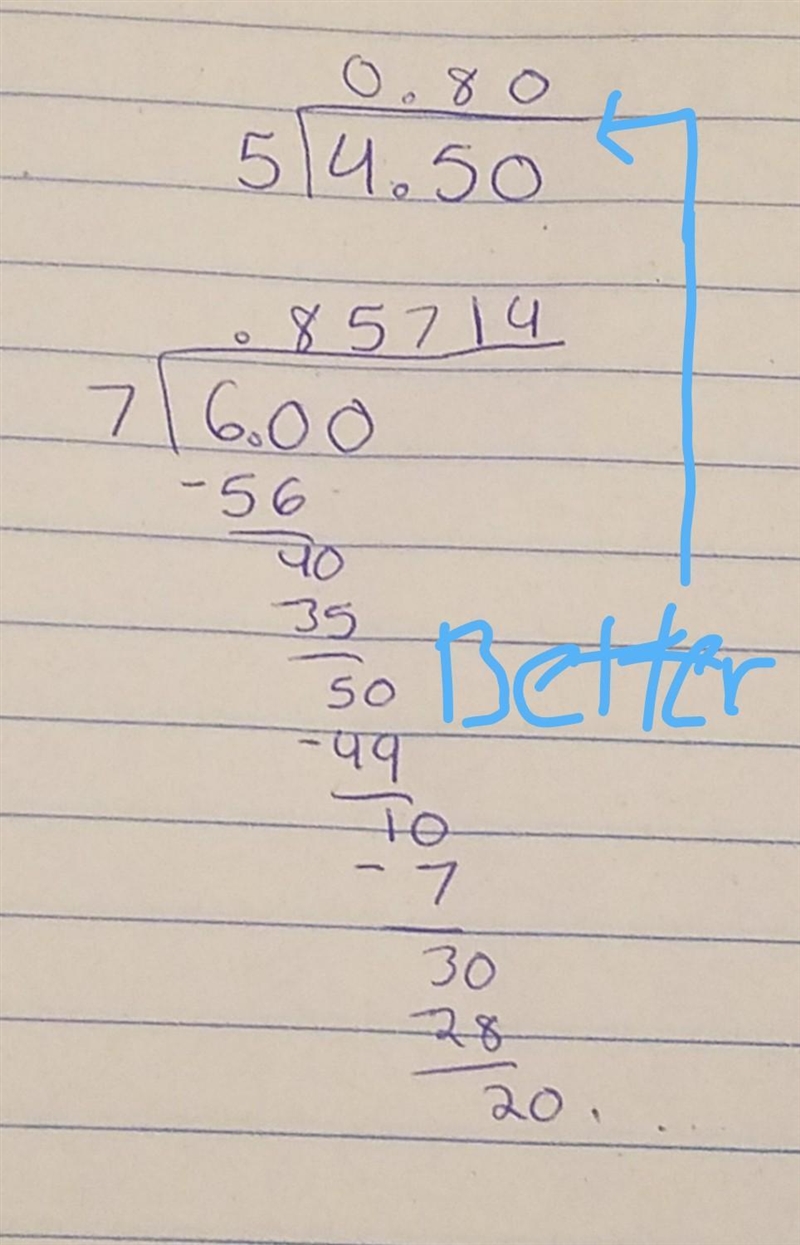 0.80
5 4.50
.85714
7 6.00
-56
40
35
50
-49
10
-7
30
-28
20. ...
Better